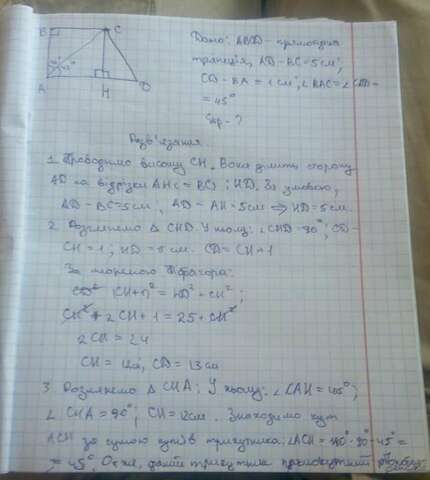 B C
45° 45°
A H D
Дано: ABCD - прямокутна
трапеція, AD - BC = 5 см,
CD - BA = 1 см, ∠BAC = ∠CAD =
= 45°
Sтр - ?
Розв'язання.
1. Проводимо висоту CH. Вона ділить сторону
AD на відрізки AH (= BC) і HD. За умовою,
AD - BC = 5 см, AD - AH = 5 см ⇒ HD = 5 см.
2. Розглянемо △ CHD. У ньому: ∠CHD = 90°; CD -
CH = 1; HD = 5 см. CD = CH + 1
За теоремою Піфагора:
CD² (CH+1)² = HD² + CH²;
CH² + 2CH + 1 = 25 + CH²
2CH = 24
CH = 12см, CD = 13см
3. Розглянемо △ CHA; У ньому: ∠CAH = 45°;
∠ CHA = 90°; CH = 12см. Знаходимо кут
ACH за сумою кутів трикутника: ∠ACH = 180° - 90° - 45° =
= 45°. Отже, даний трикутник прямокутний